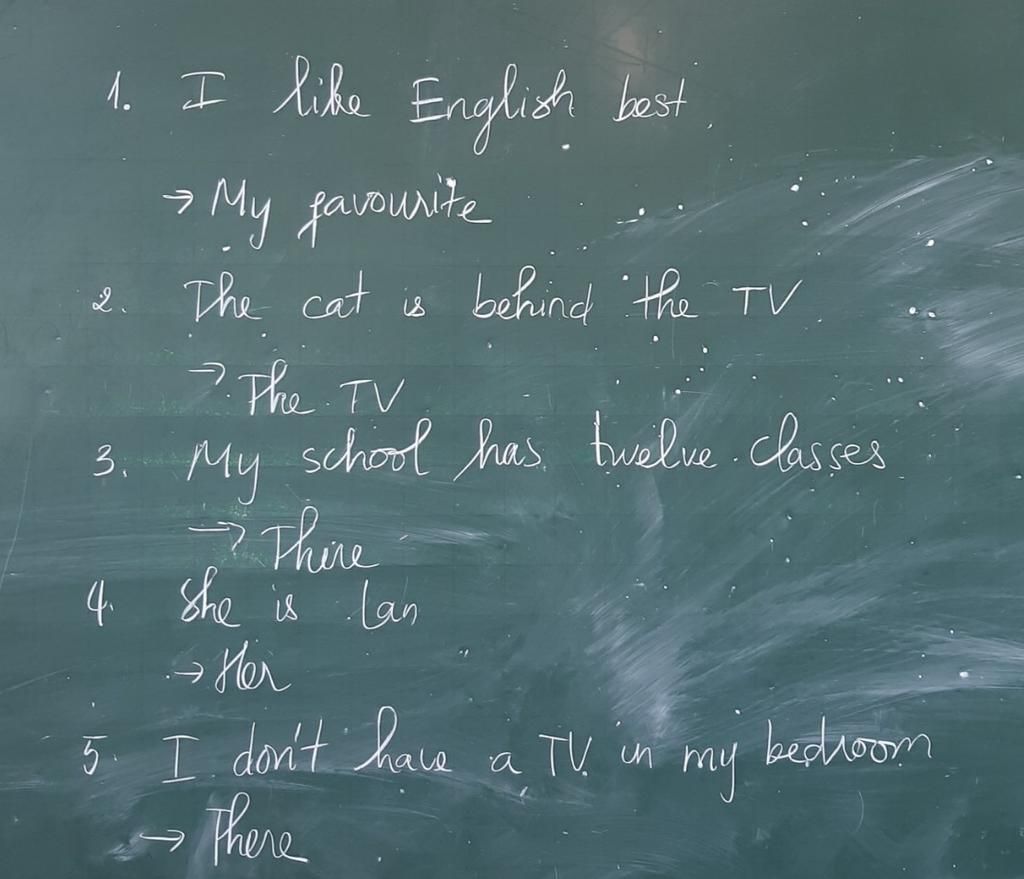 1. I like English best.
→ My favourite
2. The cat is behind the TV
→ The TV
3. My school has twelve classes
→ There
4. She is Lan
→ Her
5. I don't have a TV in my bedroom
→ There